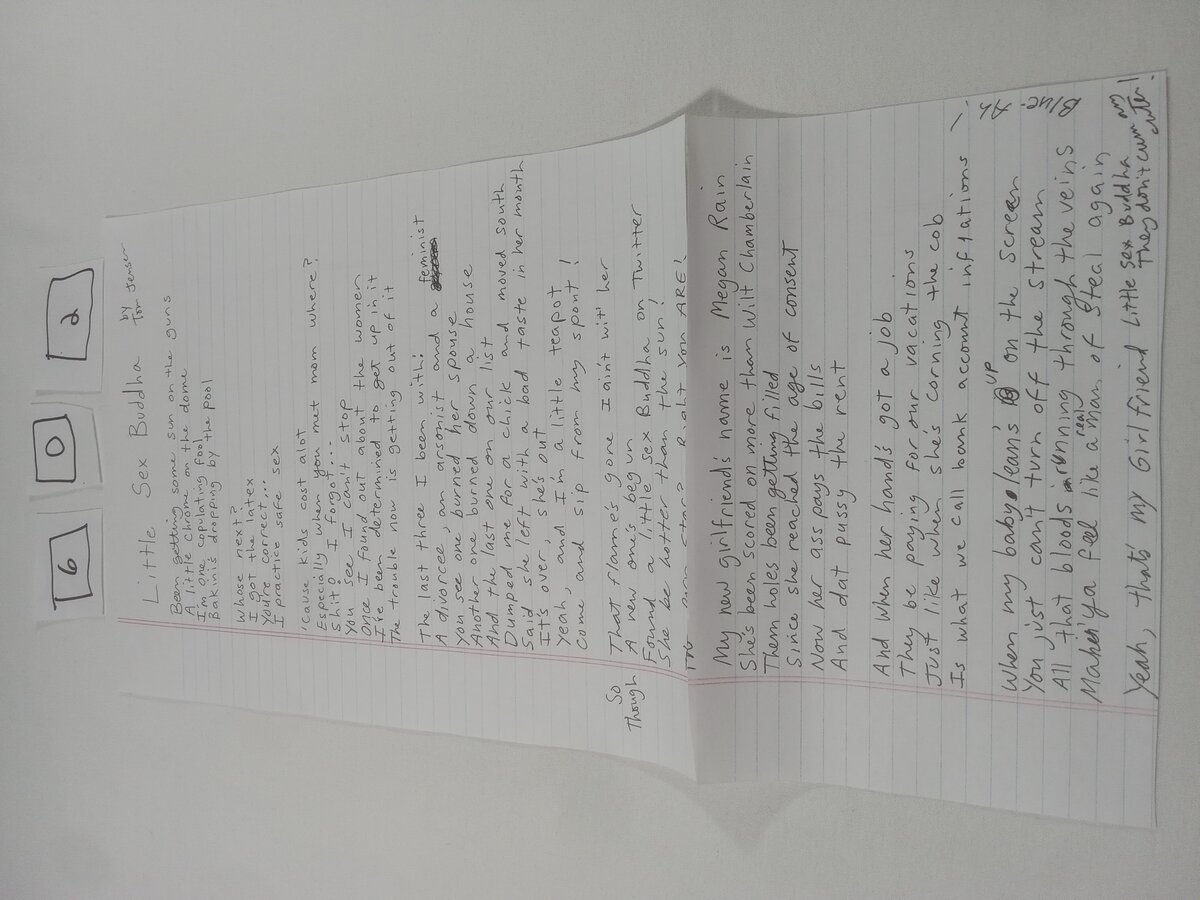 6 0 2
Little Sex Buddha by Tom Jensen
Been getting some sun on the guns
A little chrome on the dome
I'm one copulating fool
Bakinis dropping by the pool
Whose next?
I got the latex
You're correct...
I practice safe sex
'Cause kids cost alot
Especially when you met mom where?
Shit! I forgot...
You see I can't stop
Once I found out about the women
I've been determined to get up in it
The trouble now is getting out of it
The last three I been with:
A divorcee, an arsonist and a feminist
You see one burned her spouse
Another one burned down a house
And the last one on our list
Dumped me for a chick and moved south
Said she left with a bad taste in her mouth
It's over, she's out
Yeah, and I'm a little teapot
Come and sip from my spout!
So That flame's gone I ain't wit' her
Though A new one's begun
Found a little Sex Buddha on Twitter
She be hotter than the sun!
star? Right you ARE!
My new girlfriend's name is Megan Rain
She's been scored on more than Wilt Chamberlain
Them holes been getting filled
Since she reached the age of consent
Now her ass pays the bills
And dat pussy the rent
And when her hand's got a job
They be paying for our vacations
Just like when she's corning the cob
Is what we call bank account inflations
When my baby leans up on the screen
You just can't turn off the stream
All that bloods running through the veins
Maken' ya feel like a really man of steal again
Yeah, that's my Girlfriend Little Sex Buddha
They don't cum any cuter!